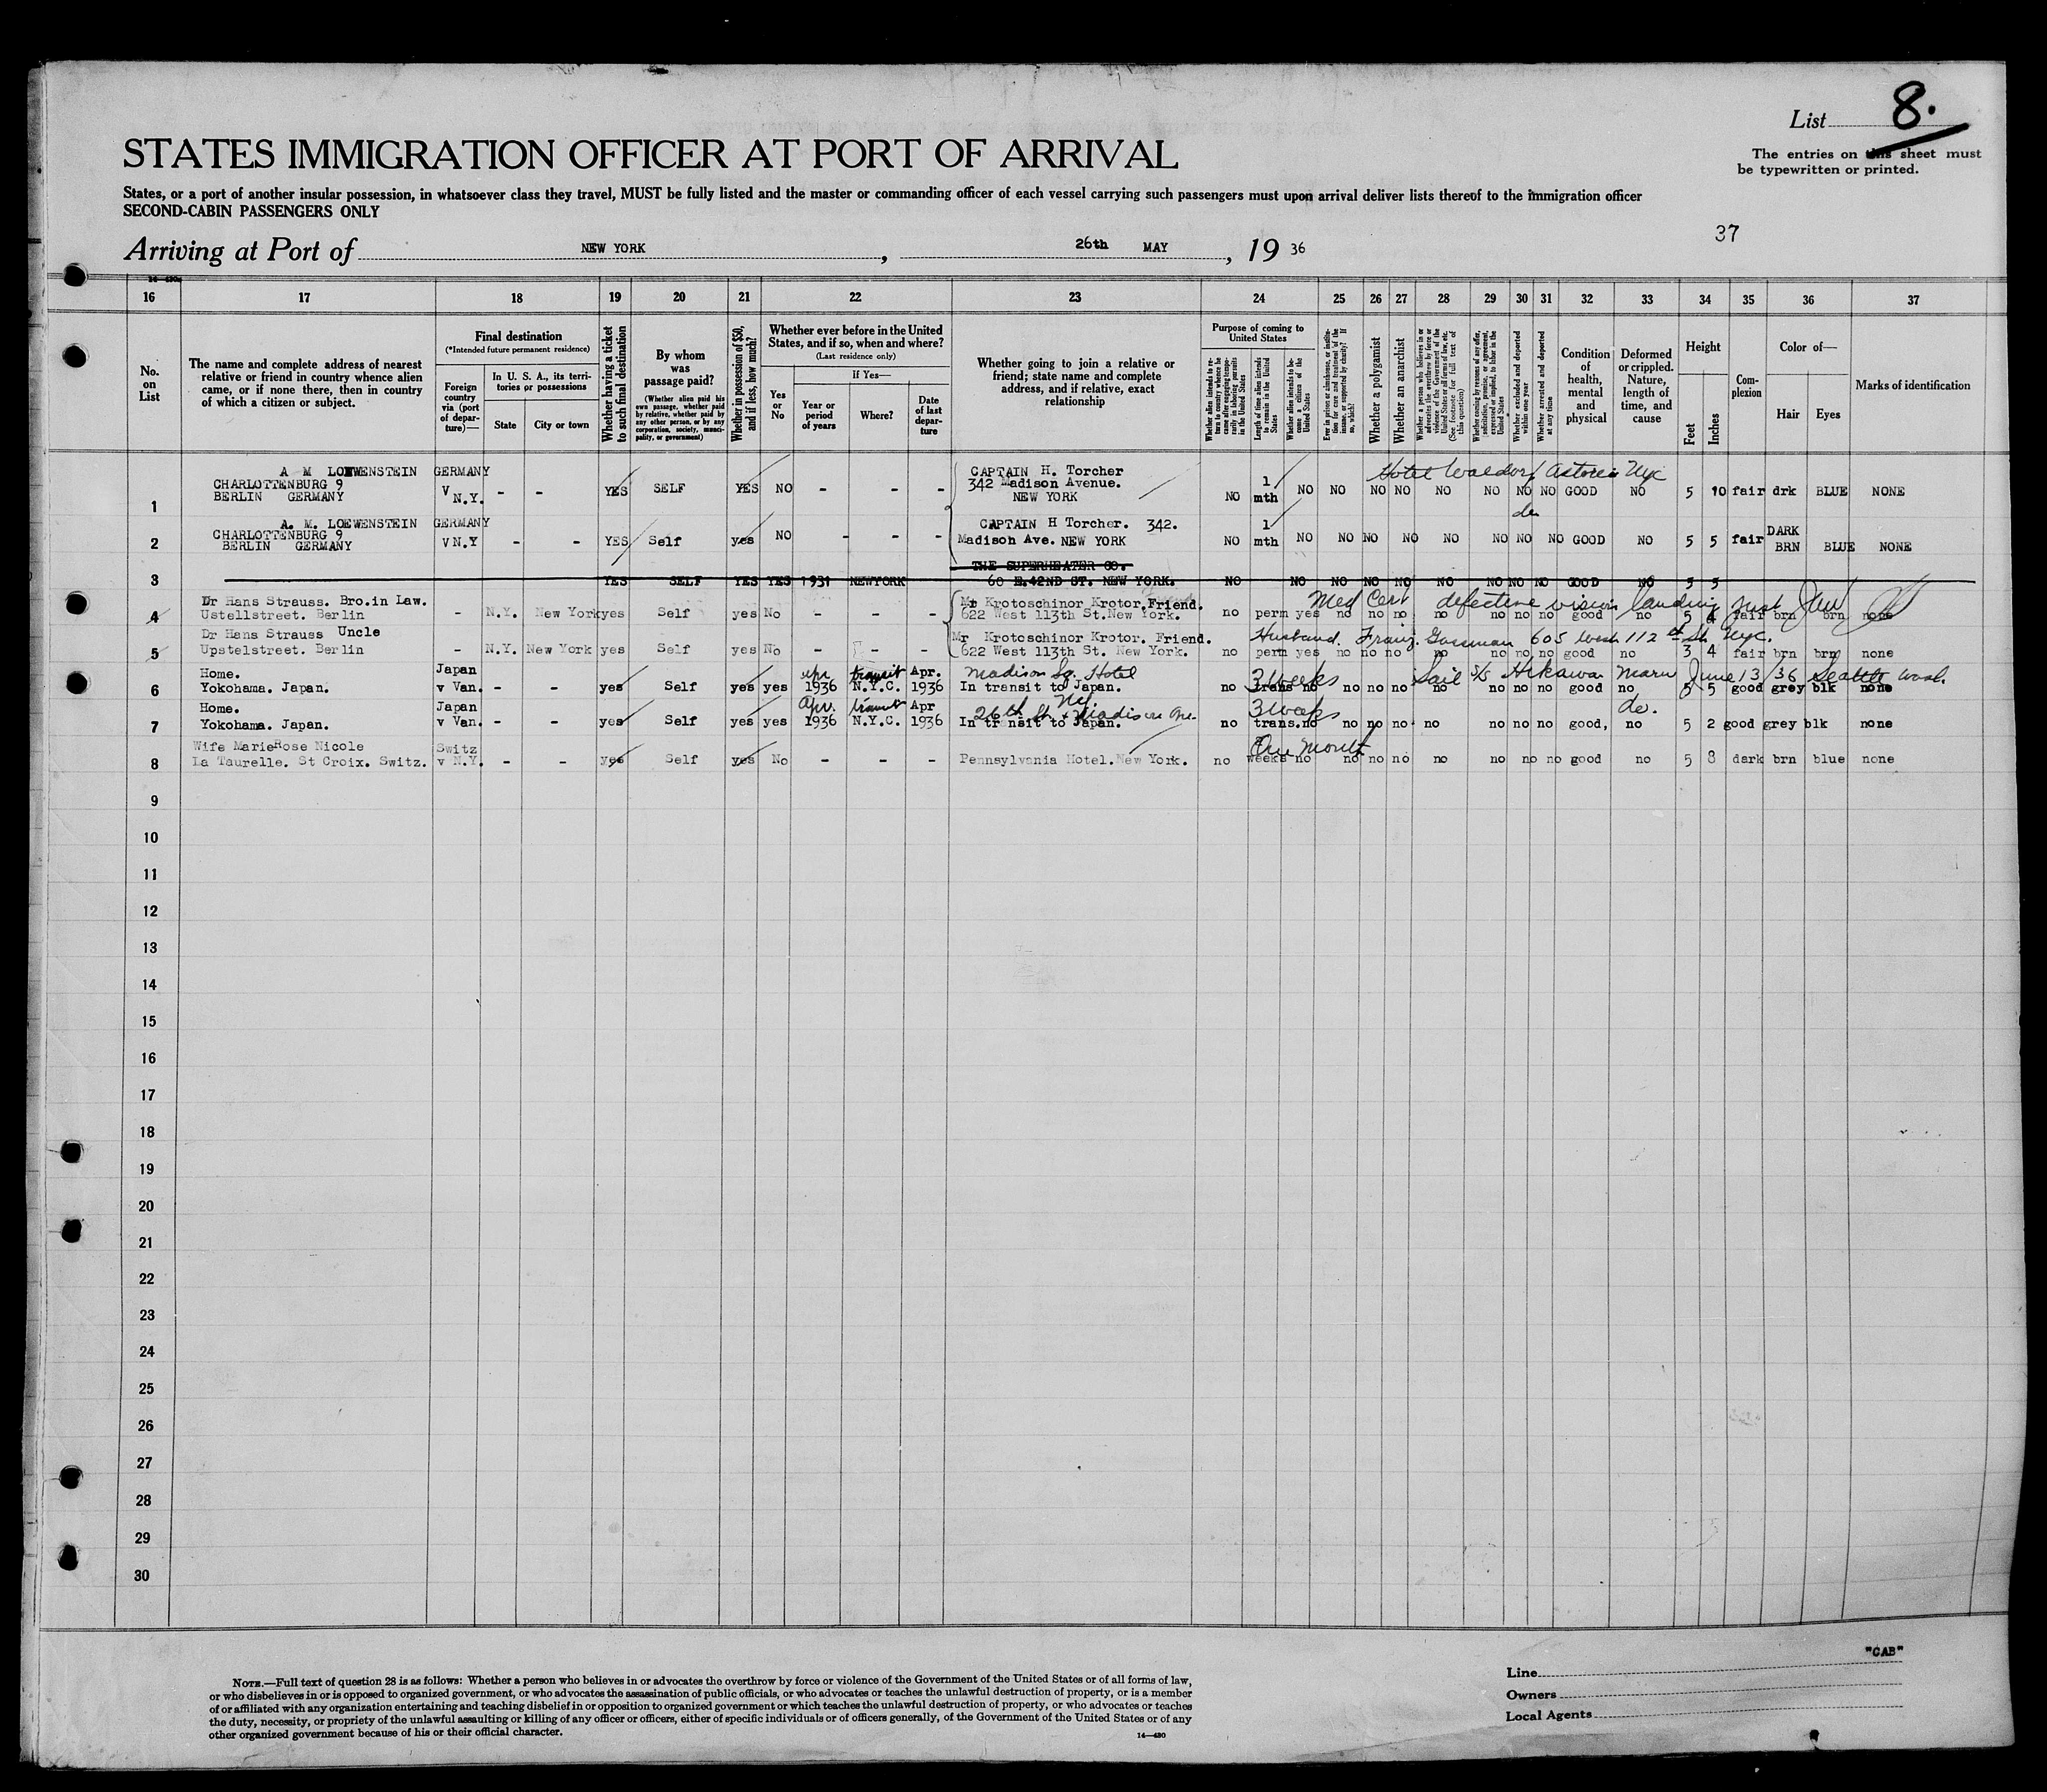 List 8.
STATES IMMIGRATION OFFICER AT PORT OF ARRIVAL
The entries on this sheet must
be typewritten or printed.
States, or a port of another insular possession, in whatsoever class they travel, MUST be fully listed and the master or commanding officer of each vessel carrying such passengers must upon arrival deliver lists thereof to the immigration officer
SECOND-CABIN PASSENGERS ONLY
37
Arriving at Port of NEW YORK, 26th MAY, 19 36
16 17 18 19 20 21 22 23 24 25 26 27 28 29 30 31 32 33 34 35 36 37
No. on List
The name and complete address of nearest relative or friend in country whence alien came, or if none there, then in country of which a citizen or subject.
Final destination
(*Intended future permanent residence)
Foreign country via (port of departure)—
In U. S. A., its territories or possessions
State
City or town
Whether having a ticket to such final destination
By whom was passage paid?
(Whether alien paid his own passage, whether paid by relative, whether paid by any other person, or by any corporation, society, municipality, or government)
Whether in possession of $50, and if less, how much?
Whether ever before in the United States, and if so, when and where?
(Last residence only)
Yes or No
If Yes—
Year or period of years
Where?
Date of last departure
Whether going to join a relative or friend; state name and complete address, and if relative, exact relationship
Purpose of coming to United States
Length of time alien intends to remain in the United States
Whether alien intends to become a citizen of the United States
Whether a polygamist
Whether an anarchist
Whether excluded and deported within one year
Whether arrested and deported at any time
Condition of health, mental and physical
Deformed or crippled. Nature, length of time, and cause
Height
Feet
Inches
Complexion
Color of—
Hair
Eyes
Marks of identification
Hotel Waldorf Astoria Nyc
A M LOEWENSTEIN GERMANY CAPTAIN H. Torcher
CHARLOTTENBURG 9 342 Madison Avenue.
1 BERLIN GERMANY V N.Y. - - YES SELF YES NO - - - NEW YORK NO 1 mth NO NO NO NO NO NO NO NO GOOD NO 5 10 fair drk BLUE NONE
do
A. M. LOEWENSTEIN GERMANY CAPTAIN H Torcher. 342.
CHARLOTTENBURG 9
2 BERLIN GERMANY V N.Y - - YES Self yes NO - - - Madison Ave. NEW YORK NO 1 mth NO NO NO NO NO NO NO NO GOOD NO 5 5 fair DARK BRN BLUE NONE
THE SUPERHEATER CO.
3 YES SELF YES YES 1931 NEWYORK 60 E.42ND ST. NEW YORK. NO NO NO NO NO NO NO NO NO GOOD NO 5 5
Dr Hans Strauss. Bro.in Law. Mr Krotoschinor Krotor.Friend. Med Cert defective vision landing just
4 Ustellstreet. Berlin - N.Y. New York yes Self yes No - - - 622 West 113th St.New York. no perm yes no no no no no no no good no 5 4 fair brn brn none
Dr Hans Strauss Uncle Mr Krotoschinor Krotor. Friend. Husband. Franz Gossman 605 West 112th St Nyc.
5 Upstelstreet. Berlin - N.Y. New York yes Self yes No - - - 622 West 113th St. New York. no perm yes no no no no no no no good no 3 4 fair brn brn none
Home. Japan Apr transit Apr. Madison Sq. Hotel 3 weeks Sail S/S Hikawa Maru June 13/36 Seattle Wash.
6 Yokohama. Japan. v Van. - - yes Self yes yes 1936 N.Y.C. 1936 In transit to Japan. no trans no no no no no no no no good no 5 5 good grey blk none
Home. Japan Apr. transit Apr 26th St + Madison Ave. NY 3 weeks do.
7 Yokohama. Japan. v Van. - - yes Self yes yes 1936 N.Y.C. 1936 In transit to Japan. no trans.no no no no no no no no good, no 5 2 good grey blk none
Wife MarieRose Nicole Switz One Month
8 La Taurelle. St Croix. Switz. v N.Y. - - yes Self yes No - - - Pennsylvania Hotel.New York. no weeks no no no no no no no no good no 5 8 dark brn blue none
9
10
11
12
13
14
15
16
17
18
19
20
21
22
23
24
25
26
27
28
29
30
"CAB"
Line
Owners
Local Agents
NOTE.—Full text of question 28 is as follows: Whether a person who believes in or advocates the overthrow by force or violence of the Government of the United States or of all forms of law,
or who disbelieves in or is opposed to organized government, or who advocates the assassination of public officials, or who advocates or teaches the unlawful destruction of property, or is a member
of or affiliated with any organization entertaining and teaching disbelief in or opposition to organized government or which teaches the unlawful destruction of property, or who advocates or teaches
the duty, necessity, or propriety of the unlawful assaulting or killing of any officer or officers, either of specific individuals or of officers generally, of the Government of the United States or of any
other organized government because of his or their official character.
14—430